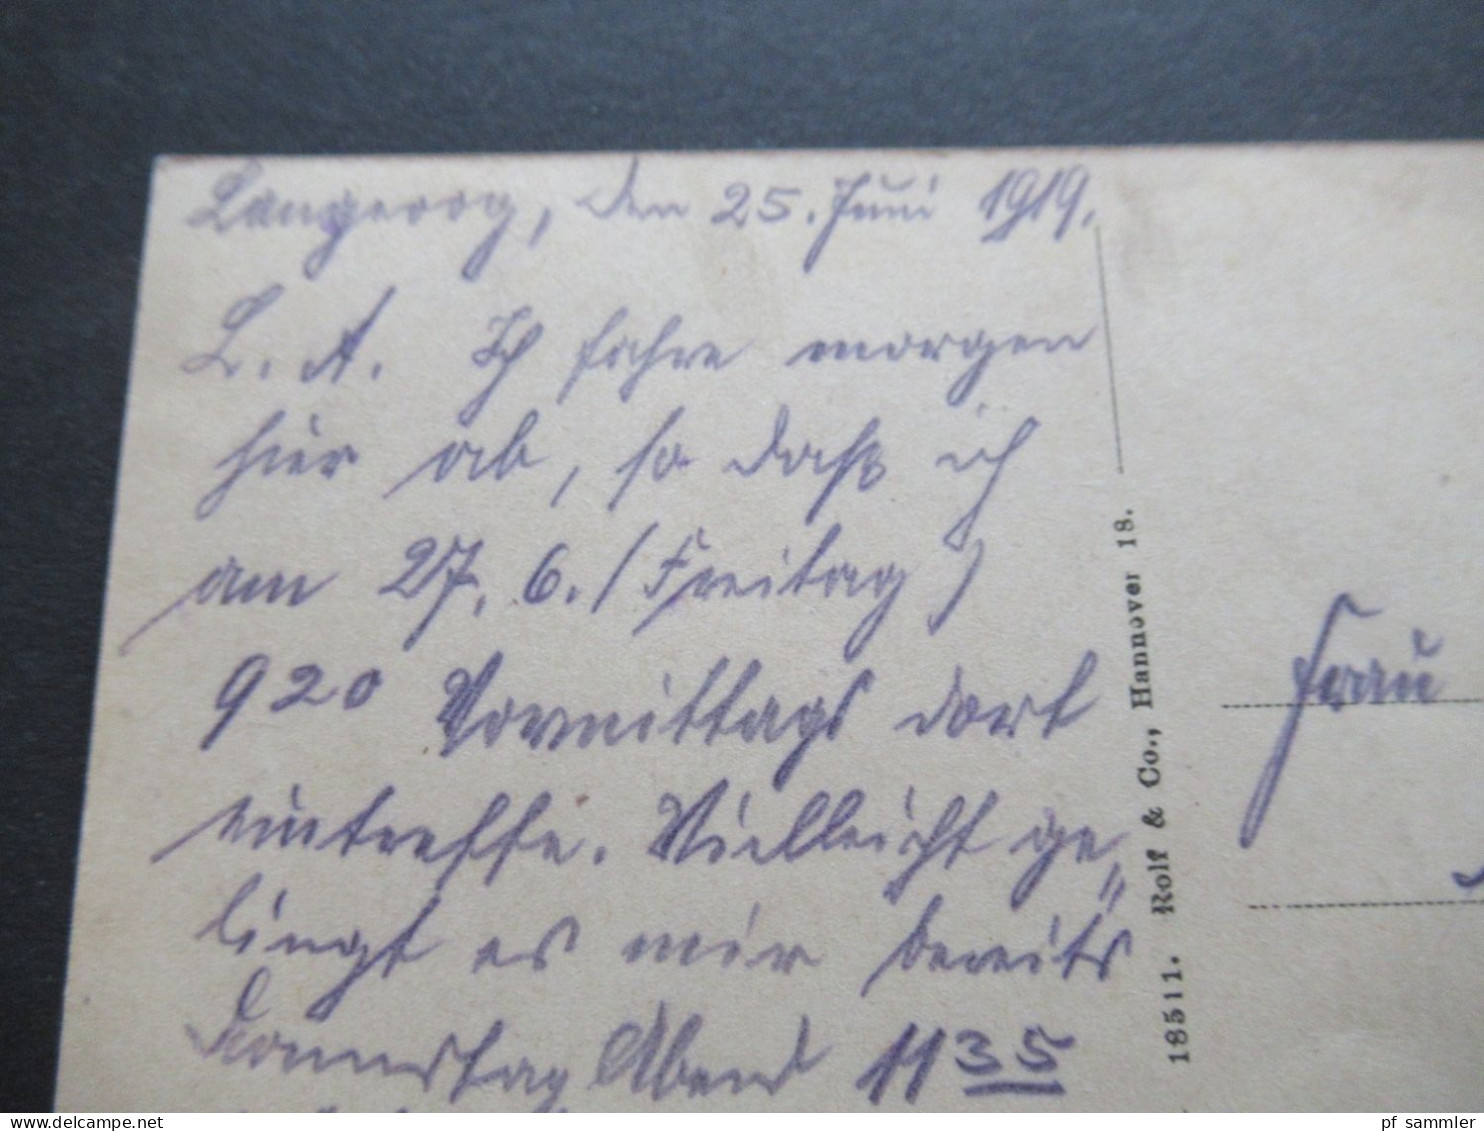 Langeoog, den 25. Juni 1919.
L. A. Ich fahre morgen
hier ab, so daß ich
am 27. 6. (Freitag)
920 Vormittags dort
eintreffe. Vielleicht ge„
lingt es mir bereits
Donnerstag Abend 11 35
18511. Rolf & Co., Hannover 18.
Frau
pf_sammler